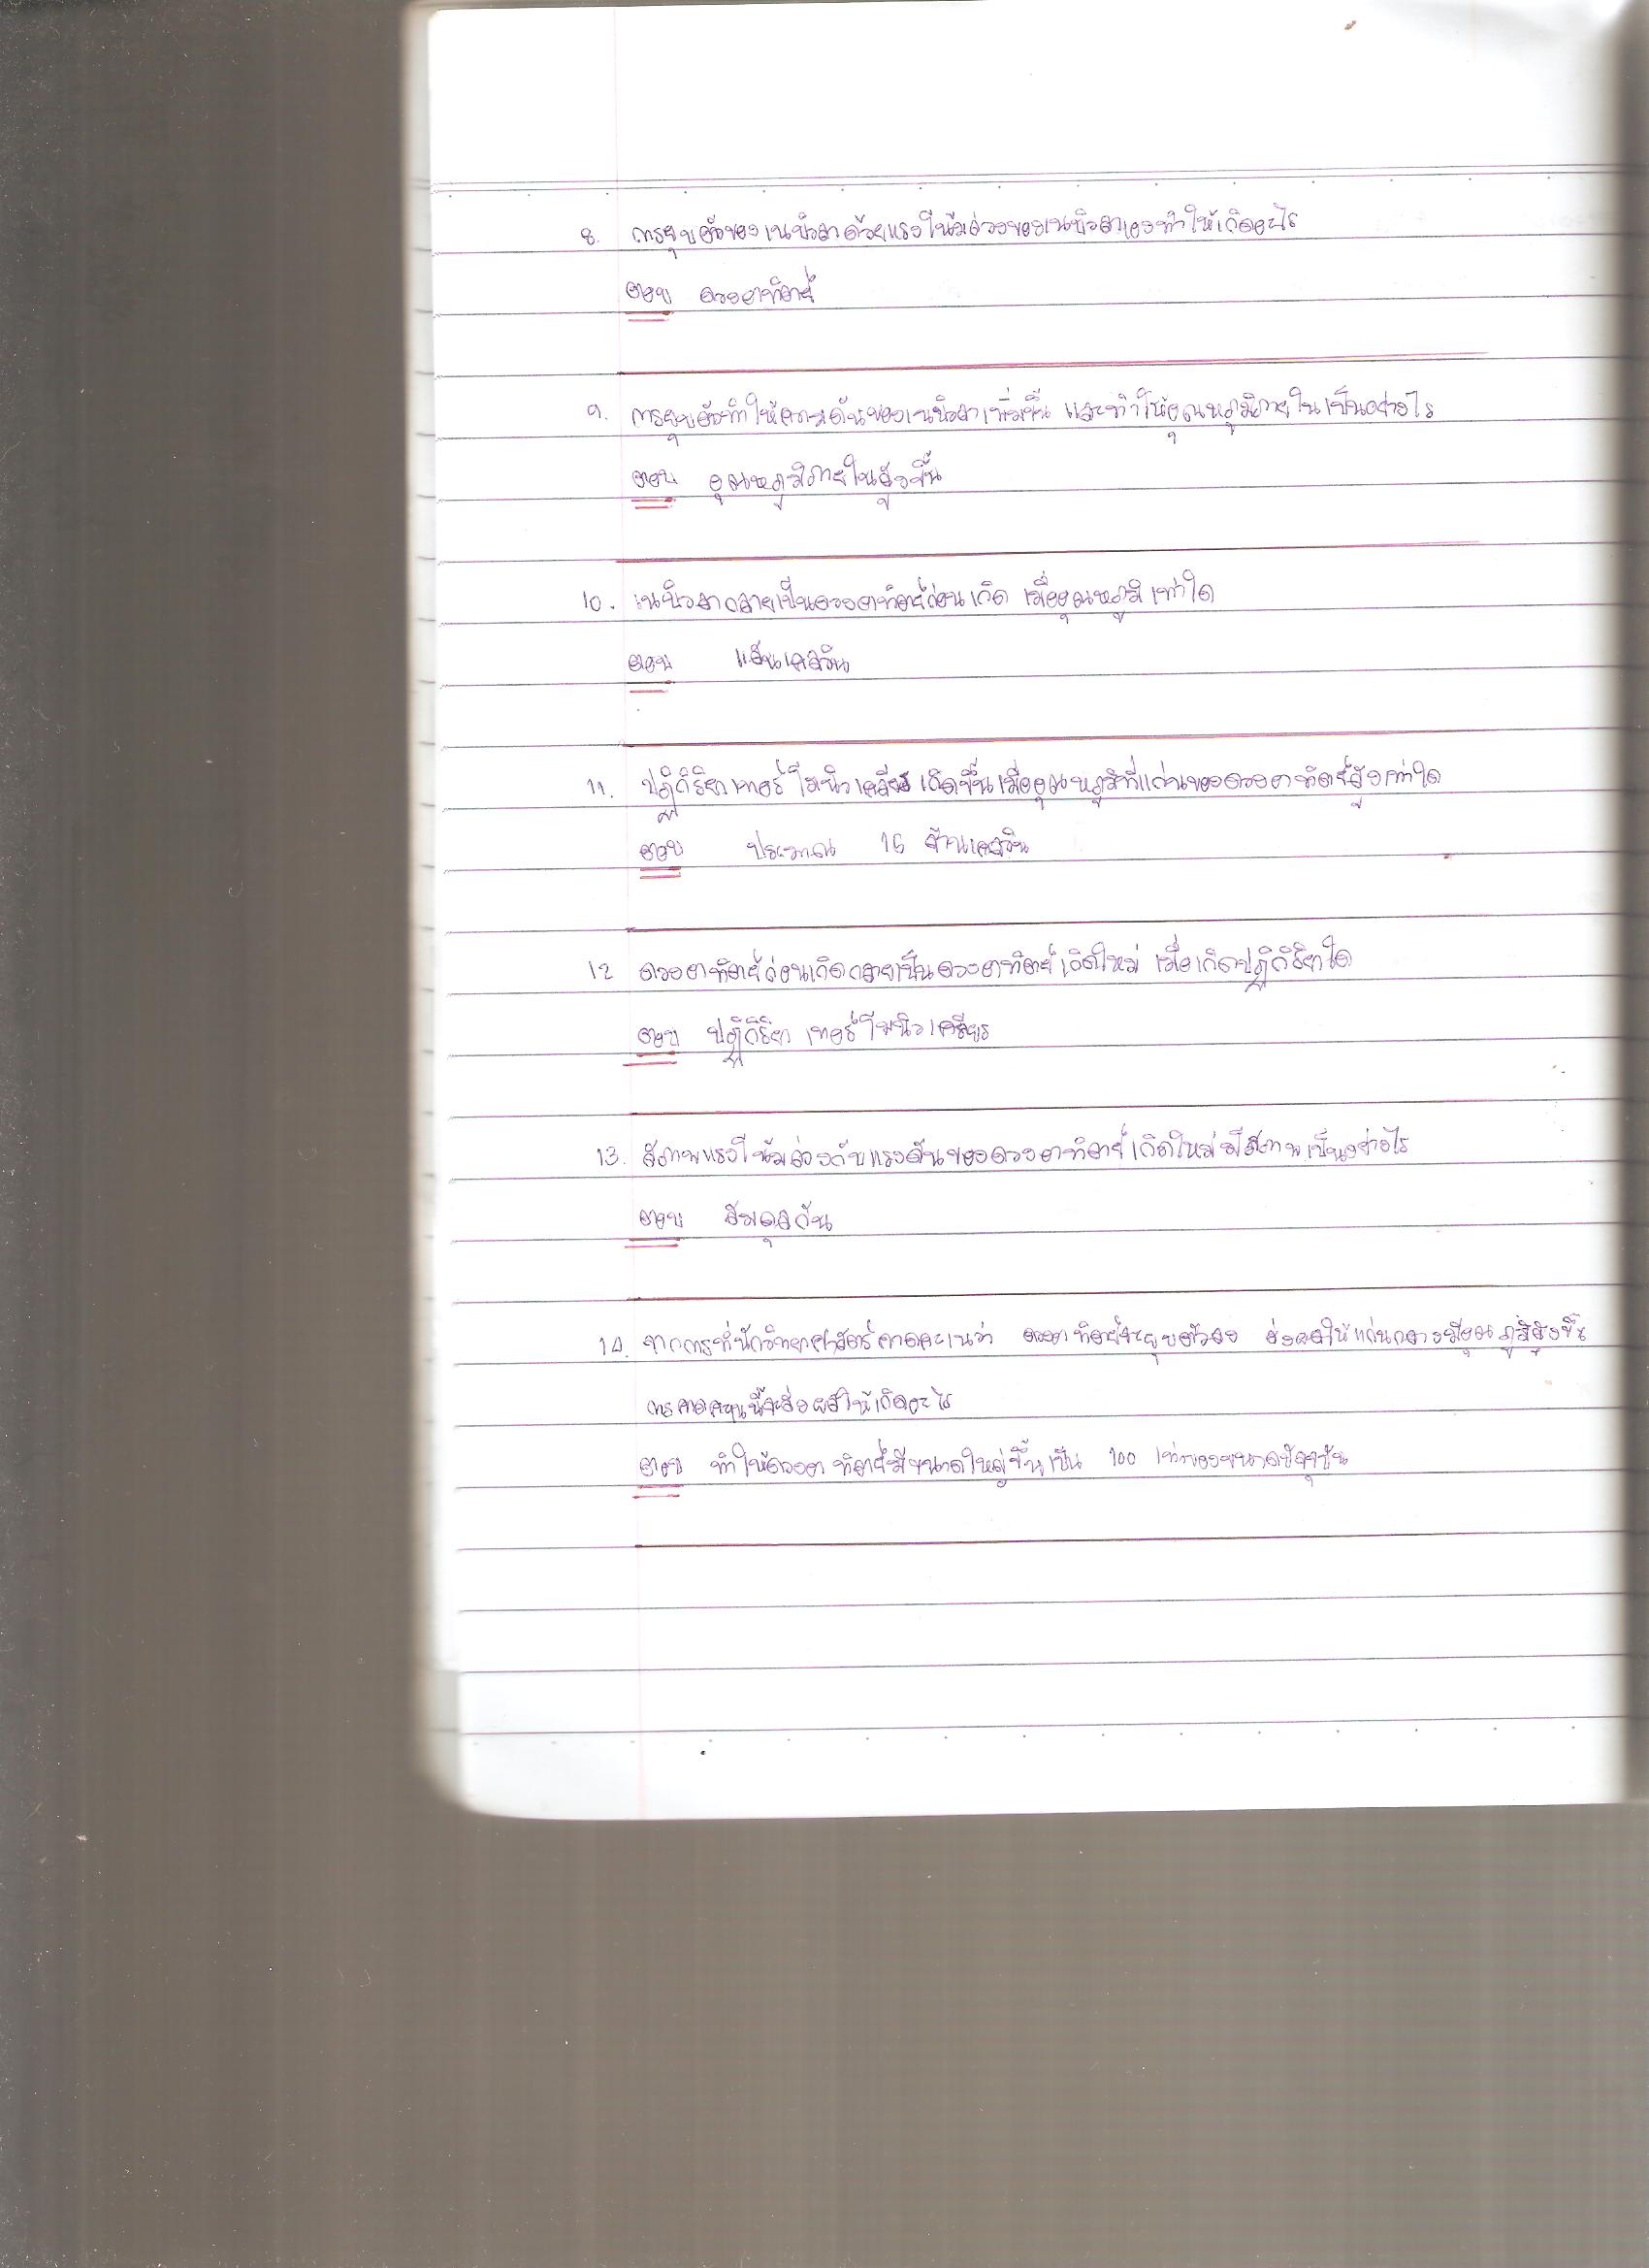 8. การยุบตัวของเนบิวลาด้วยแรงโน้มถ่วงของเนบิวลาเองทำให้เกิดอะไร
ตอบ ดวงอาทิตย์
9. การยุบตัวทำให้ความดันของเนบิวลาเพิ่มขึ้น และทำให้อุณหภูมิภายในเป็นอย่างไร
ตอบ อุณหภูมิภายในสูงขึ้น
10. เนบิวลากลายเป็นดวงอาทิตย์ก่อนเกิด เมื่ออุณหภูมิเท่าใด
ตอบ แสนเคลวิน
11. ปฏิกิริยาเทอร์โมนิวเคลียร เกิดขึ้นเมื่ออุณหภูมิที่แก่นของดวงอาทิตย์สูงเท่าใด
ตอบ ประมาณ 16 ล้านเคลวิน
12 ดวงอาทิตย์ก่อนเกิดกลายเป็นดวงอาทิตย์เกิดใหม่ เมื่อเกิดปฏิกิริยาใด
ตอบ ปฏิกิริยา เทอร์โมนิวเคลียร
13. สภาพแรงโน้มถ่วงกับแรงดันของดวงอาทิตย์เกิดใหม่มีสภาพเป็นอย่างไร
ตอบ สมดุลกัน
14. จากการที่นักวิทยาศาสตร์คาดคะเนว่า ดวงอาทิตย์จะยุบตัวลง ส่งผลให้แก่นกลางมีอุณภูมิสูงขึ้น
การคาดคะเนนี้จะส่งผลให้เกิดอะไร
ตอบ ทำให้ดวงอาทิตย์มีขนาดใหญ่ขึ้นเป็น 100 เท่าของขนาดปัจจุบัน